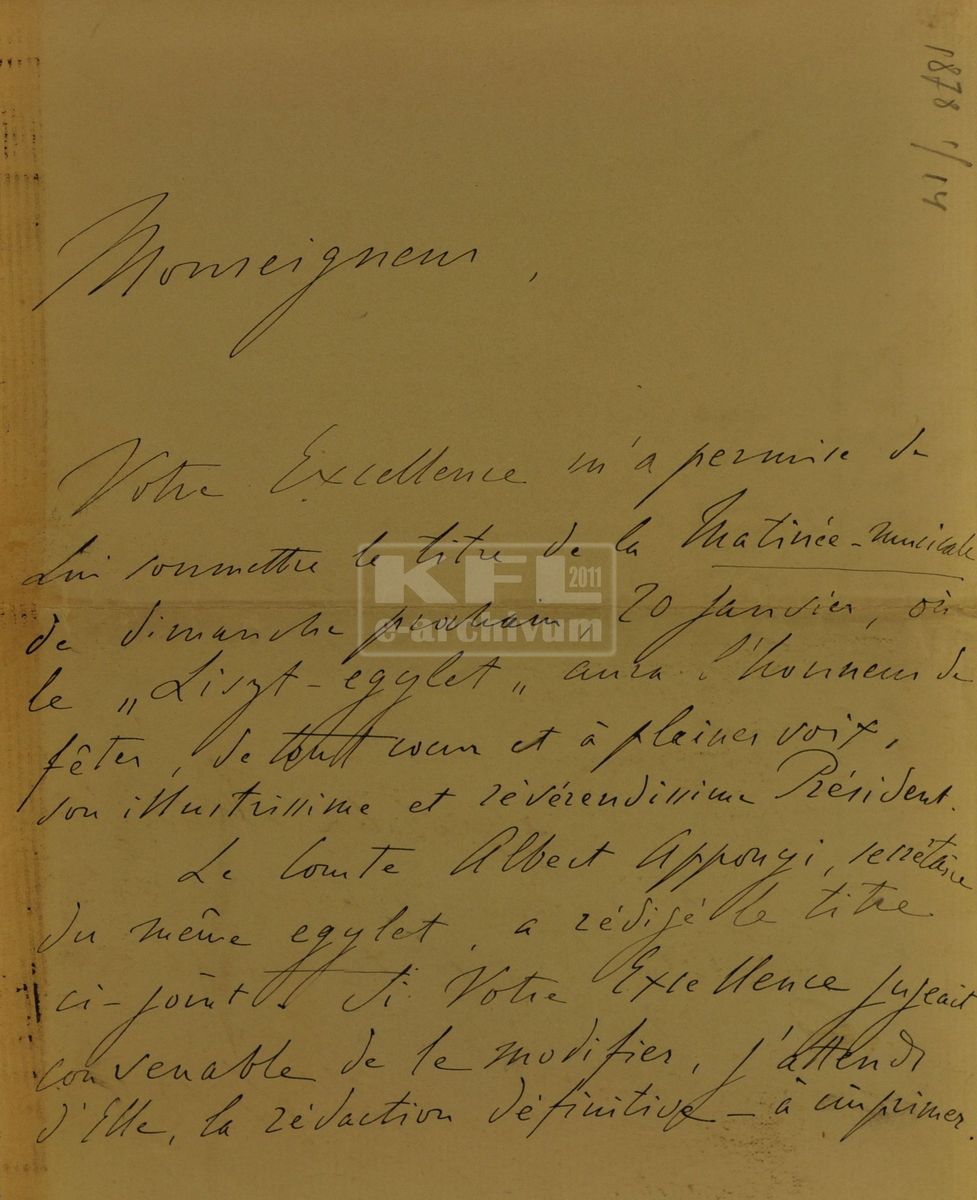 1878 1/14
Monseigneur,
Votre Excellence m'a permise de
Lui soumettre le titre de la Matinée-musicale
de dimanche prochain, 20 janvier, où
le „Liszt-egylet„ aura l'honneur de
fêter, de tout coeur et à pleines voix,
son illustrissime et révérendissime Président.
Le Comte Albert Apponyi, secrétaire
du même egylet, a rédigé le titre
ci-joint. Si Votre Excellence jugeait
convenable de le modifier, j'attends
d'Elle, la rédaction définitive – à imprimer.
KFL 2011
e-archívum